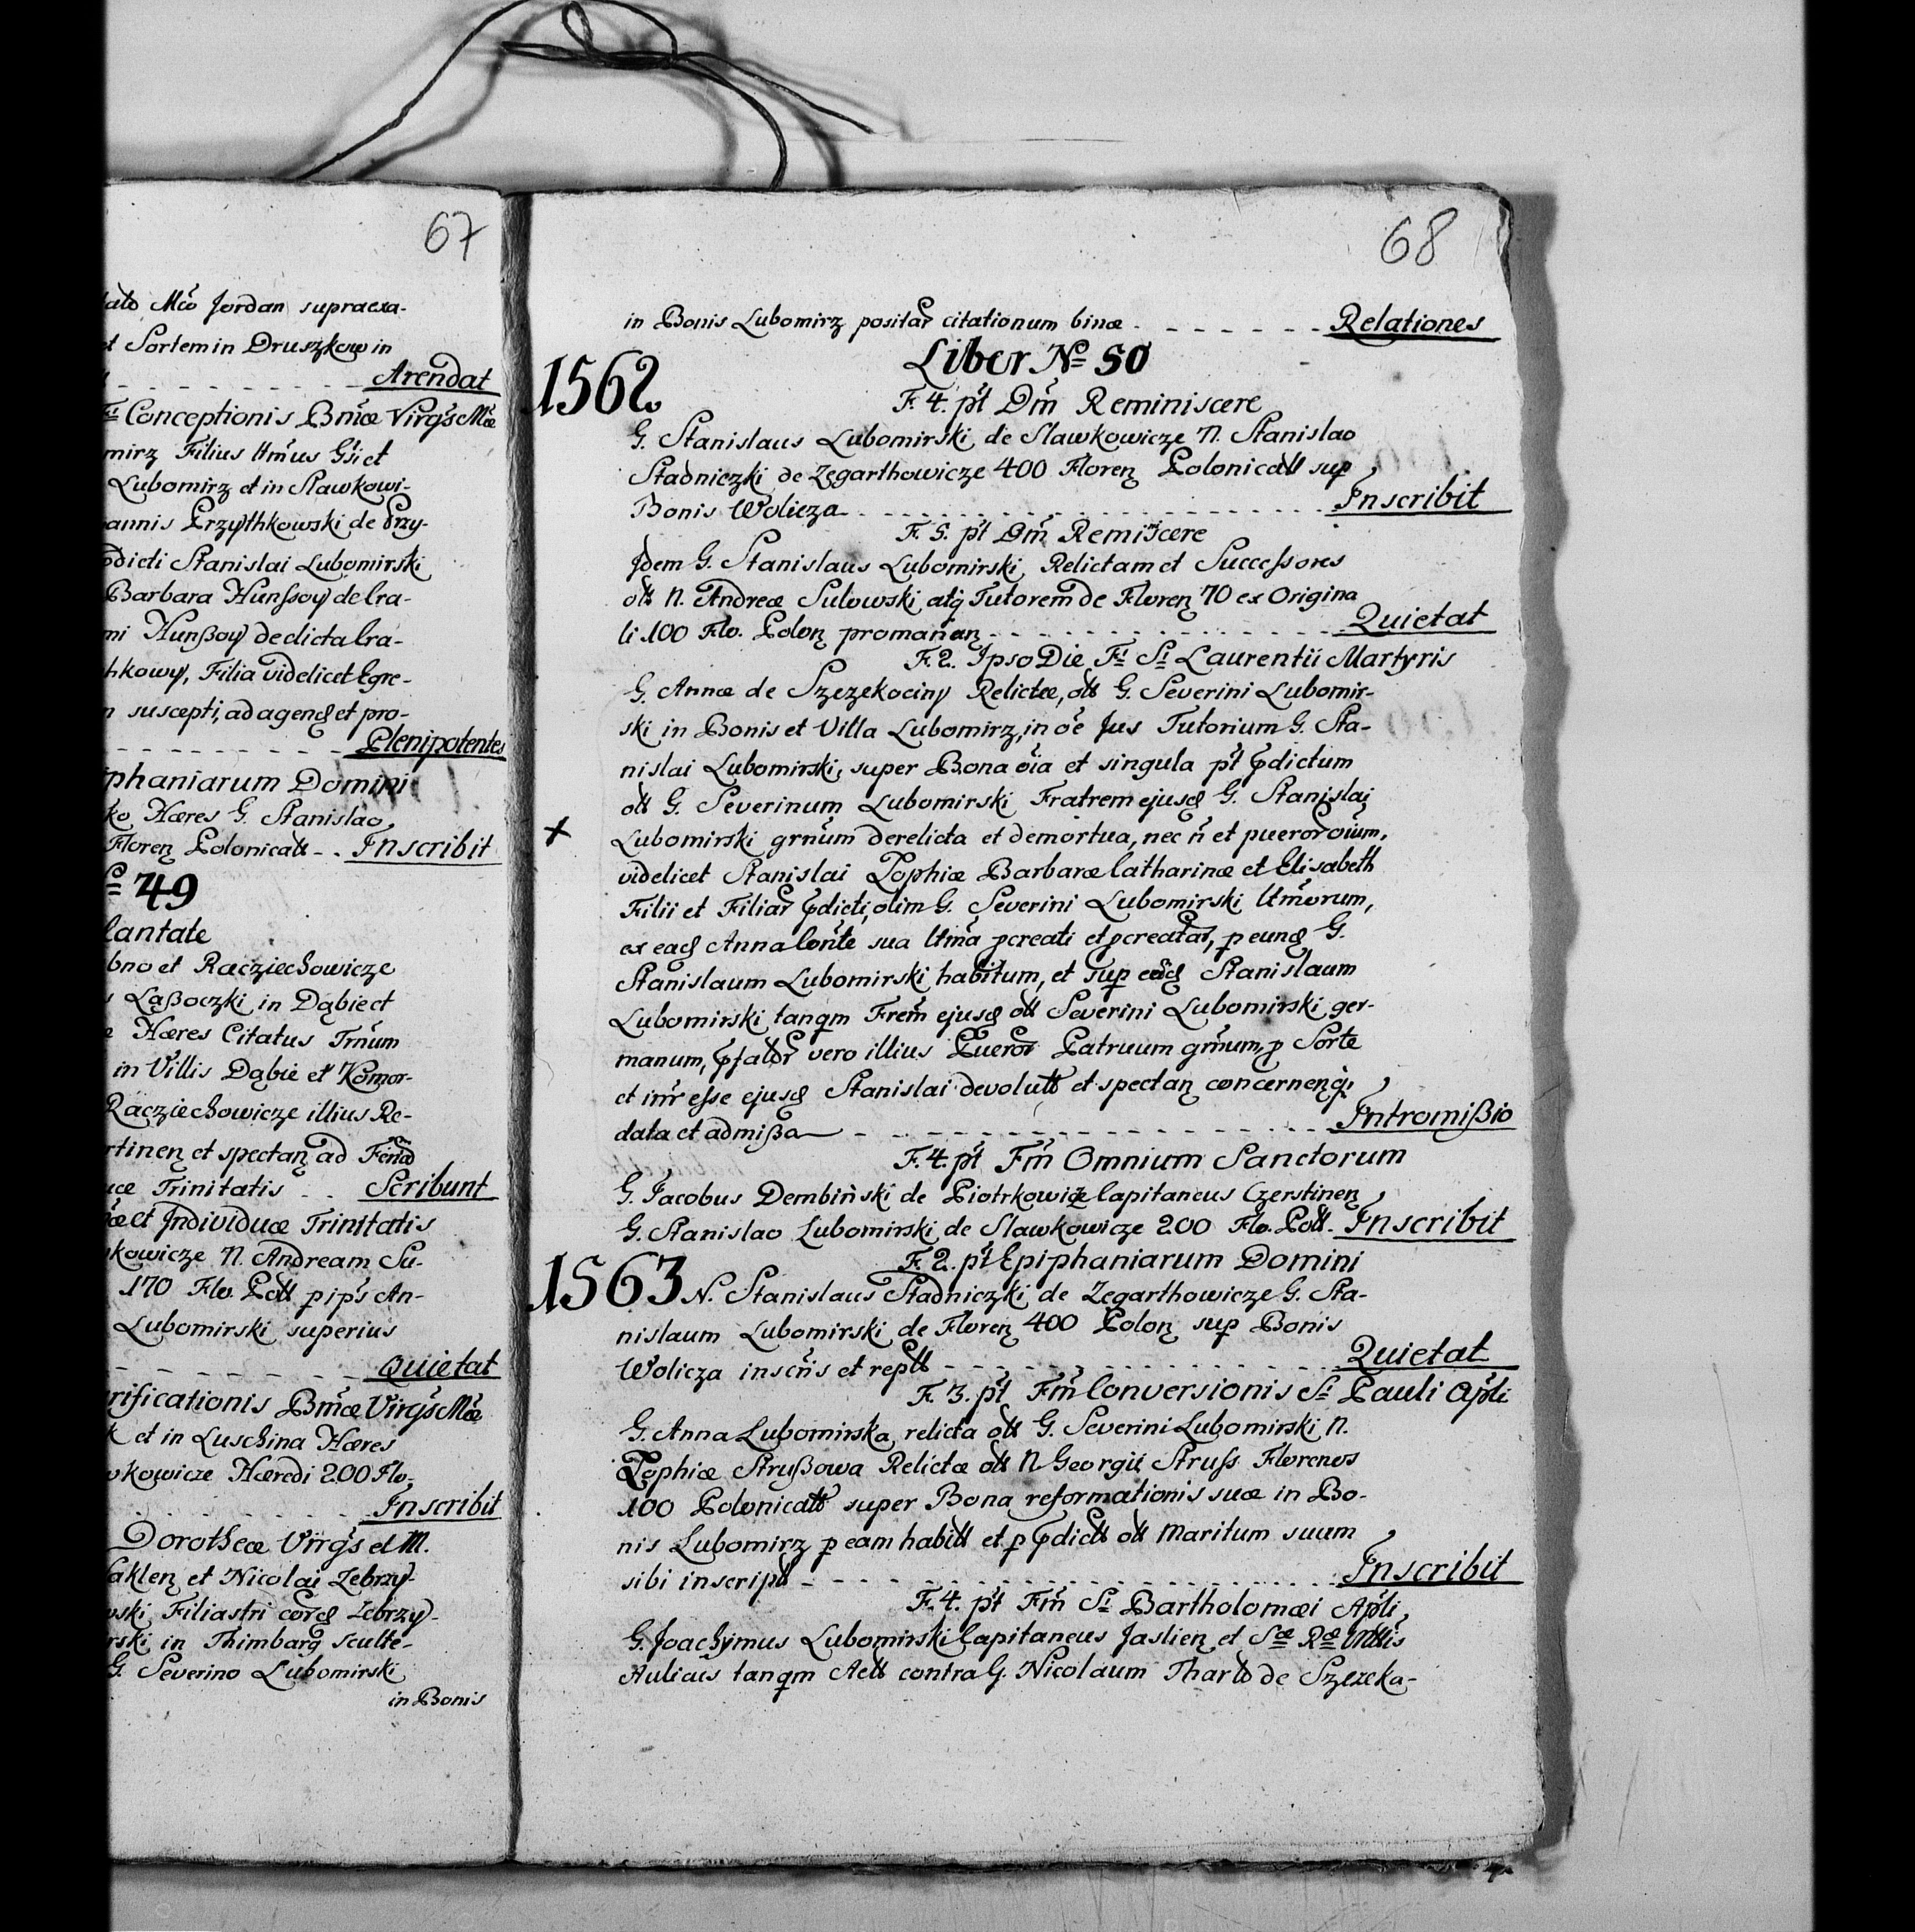 67
lato Mco Jordan supraexa-
et Sortem in Druszkow in
Arendat
Fi Conceptionis Bmæ Virgs Mæ
mirz Filius Utrius Gsi et
Lubomirz et in Sławkowi-
annis Przythkowski de Przy-
dicti Stanislai Lubomirski
Barbara Hunssoy de Cra-
mi Hunßoy de dicta Cra-
hkowy, Filia videlicet Egre-
n suscepti, ad agend et pro-
Plenipotentes
iphaniarum Domini
ko Hæres G. Stanislao
Floren Polonicall - . Inscribit
49
Cantate
bno et Raczιechowicze
Laßoczki in Dąbie et
Hæres Citatus Trnum
in Villis Dąbie et Komor-
Raczιechowicze illius Re-
rtinen et spectan ad
uæ Trinitatis . . Scribunt
æ et Individuæ Trinitatis
kowicze N. Andream Su-
170 Flo. Poll p ips An-
Lubomirski superius
Quietat
rificationis Bmæ Virgs Mæ
k et in Luschina Hæres
wkowicze Hæredi 200 Flo.
Inscribit
Dorotheæ Virgs et M.
aklen et Nicolai Zebrzy-
wski Filiastri Zebrzy-
rski in Thimbarg sculte-
G. Severino Lubomirski
in Bonis
68
in Bonis Lubomirz positar citationum binæ - - - - - - Relationes
Liber No 50
1562
F. 4. pt Dm Reminiscere
G. Stanislaus Lubomirski de Slawkowicze N. Stanislao
Stadniczki de Zegarthowicze 400 Floren Polonicall sup
Bonis Wolicza - - - - - - - Inscribit
F. 5. pt Dm Remiscere
Idem G. Stanislaus Lubomirski Relictam et Successores
oll N. Andreæ Sulowski atq Tutorem de Floren 70 ex Origina
li 100 Flo. Polon promanan - - - - - - - Quietat
F. 2. Ipso Die Fi Si Laurentii Martyris
G. Annæ de Szczekociny Relictæ, oll G. Severini Lubomir-
ski in Bonis et Villa Lubomirz, in oe Jus Tutorium G. Sta-
nislai Lubomirski, super Bona oia et singula pt pdictum
oll G. Severinum Lubomirski Fratrem ejusd G. Stanislai
+ Lubomirski grnum derelicta et demortua, nec n et pueror oium,
videlicet Stanislai Zophiæ Barbaræ Catharinæ et Elisabeth
Filii et Filiar pdicti, olim G. Severini Lubomirski Utmorum,
ex ead Anna Conte sua Utma pcreati et pcreatar, p eund G.
Stanislaum Lubomirski habitum, et sup eod Stanislaum
Lubomirski tanqm Frem ejusd oll Severini Lubomirski ger-
manum, pfator vero illius Pueror Patruum grnum, p Sorte
et intr esse ejusd Stanislai devolutt et spectan concernenq
data et admißa - - - - - - - Intromißio
F. 4. pt Fm Omnium Sanctorum
G. Jacobus Dembiński de Piotrkowicze Capitaneus Czerstinen
G. Stanislao Lubomirski de Slawkowicze 200 Flo. Poll. Inscribit
1563
F. 2. pt Epiphaniarum Domini
N. Stanislaus Stadniczki de Zegarthowicze G. Sta-
nislaum Lubomirski de Floren 400 Polon sup Bonis
Wolicza inscris et reptt - - - - - - - Quietat
F. 3. pt Fm Conversionis Si Pauli Apli
G. Anna Lubomirska relicta oll G. Severini Lubomirski N.
Zophiæ Strußowa Relictæ oll N Georgii Struss Florenos
100 Polonicall super Bona reformationis suæ in Bo-
nis Lubomirz p eam habitt et p pdictt oll Maritum suum
sibi inscript - - - - - - - Inscribit
F. 4. pt Fm Si Bartholomæi Apli
G. Joachymus Lubomirski Capitaneus Jaslien et Sæ Ræ Mttis
Aulicus tanqm Actt contra G. Nicolaum Tharlo de Szczeka-